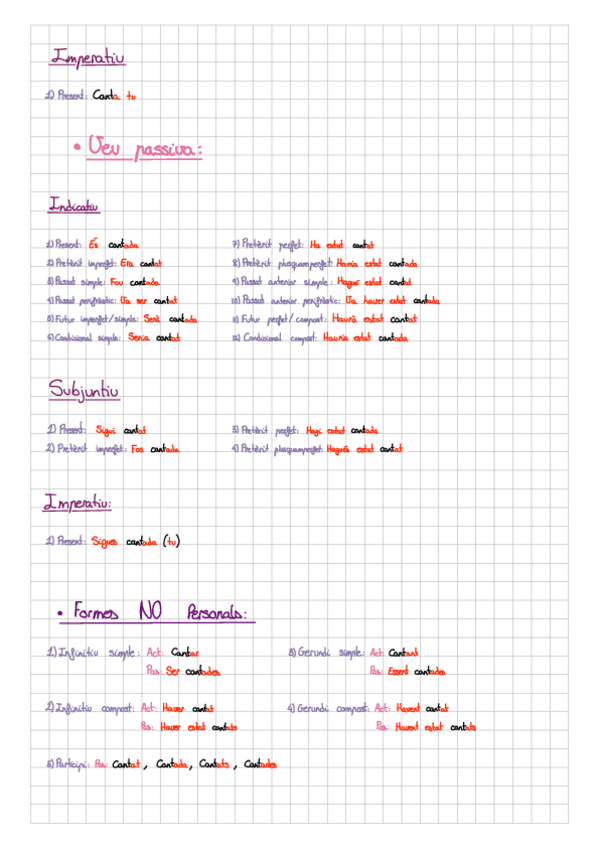 Imperatiu
1) Present: Canta tu
• Veu passiva:
Indicatiu
1) Present: És cantada
2) Pretèrit imperfet: Era cantat
3) Passat simple: Fou cantada
4) Passat perifràstic: Va ser cantat
5) Futur imperfet/simple: Serà cantada
6) Condicional simple: Seria cantat
7) Pretèrit perfet: Ha estat cantat
8) Pretèrit plusquamperfet: Havia estat cantada
9) Passat anterior simple: Hagué estat cantat
10) Passat anterior perifràstic: Va haver estat cantada
11) Futur perfet/compost: Haurà estat cantat
12) Condicional compost: Hauria estat cantada
Subjuntiu
1) Present: Sigui cantat
2) Pretèrit imperfet: Fos cantada
3) Pretèrit perfet: Hagi estat cantada
4) Pretèrit plusquamperfet: Hagués estat cantat
Imperatiu:
1) Present: Sigues cantada (tu)
• Formes NO Personals:
1) Infinitiu simple: Act: Cantar
Pas: Ser cantades
2) Infinitiu compost: Act: Haver cantat
Pas: Haver estat cantats
3) Gerundi simple: Act: Cantant
Pas: Essent cantades
4) Gerundi compost: Act: Havent cantat
Pas: Havent estat cantats
5) Participi: Pas: Cantat, Cantada, Cantats, Cantades